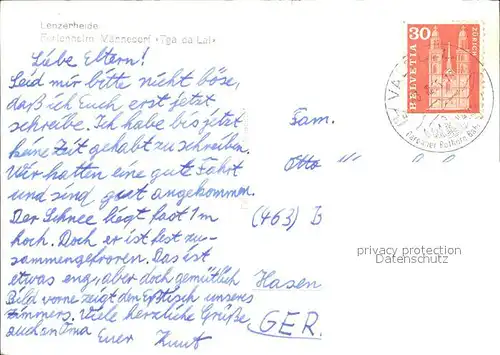 Lenzerheide
Ferienheim Männedorf «Tga da Lai»
Liebe Eltern!
Seid mir bitte nicht böse,
daß ich Euch erst jetzt
schreibe. Ich habe bis jetzt
keine Zeit gehabt zu schreiben.
Wir hatten eine gute Fahrt
und sind gut angekommen.
Der Schnee liegt fast 1m
hoch. Doch er ist fest zu-
sammengefroren. Das ist
etwas eng, aber doch gemütlich
Bild vorne zeigt den Eßtisch unseres
Zimmers. Viele herzliche Grüße
auch an Oma
Euer Knut
30
HELVETIA
ZÜRICH
Fam.
Otto
(463) B
Hasen
GER.
privacy protection
Datenschutz